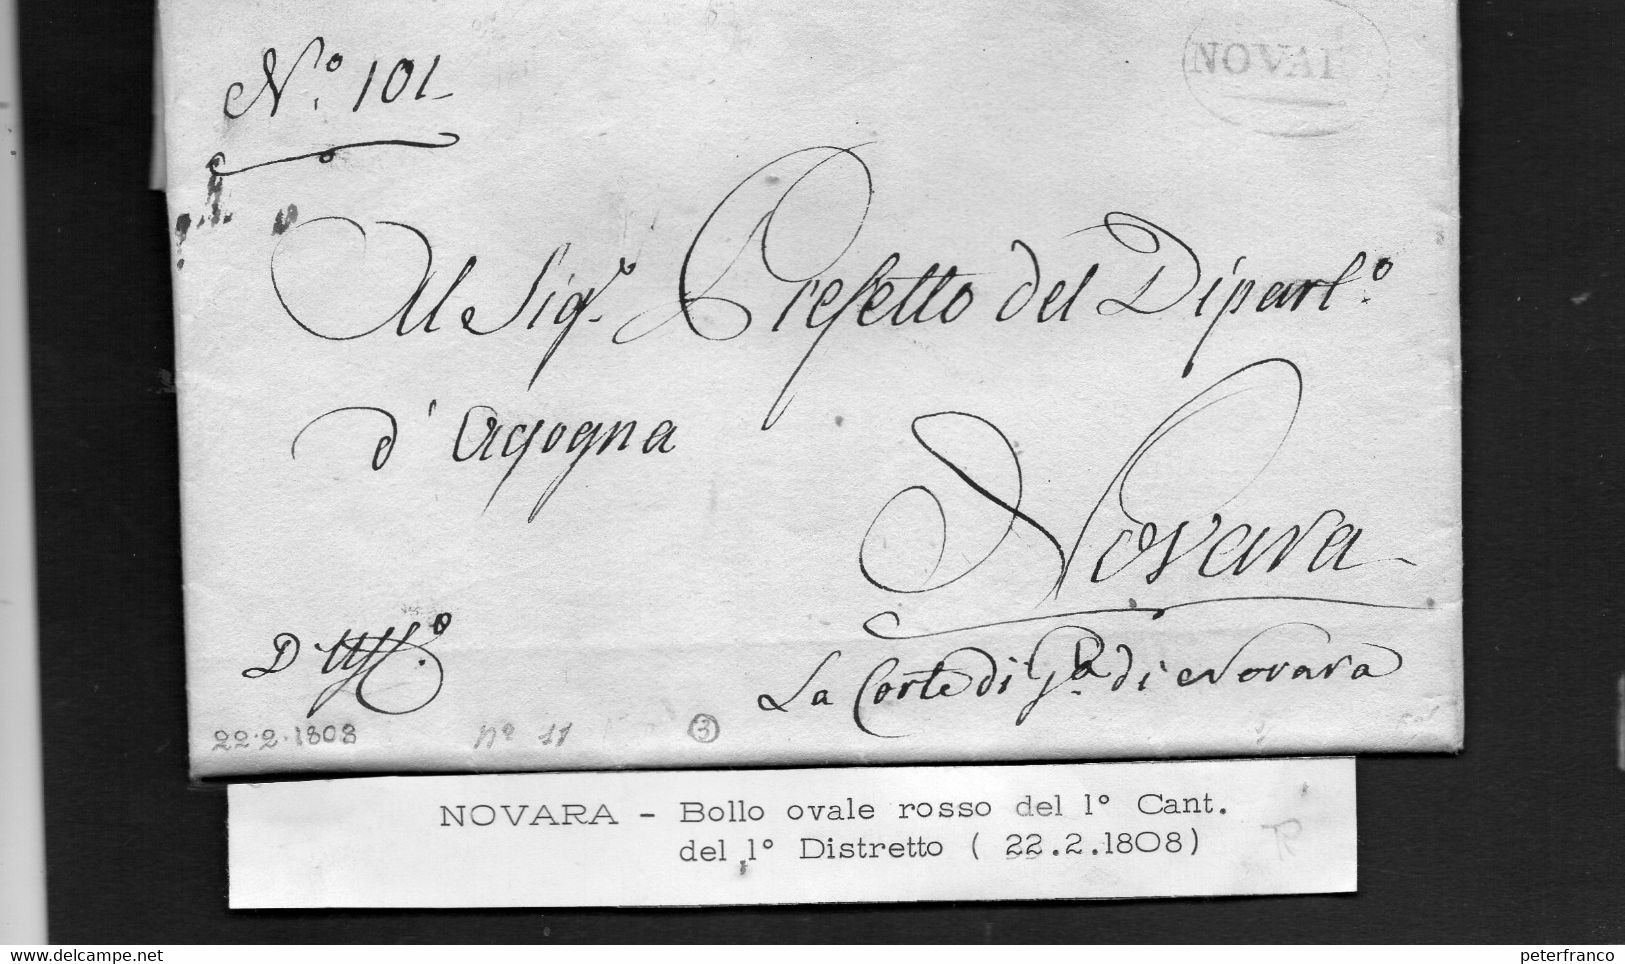 N.º 101
NOVAR
Al Sig.r Prefetto del Dipart.º
d'Agogna
Novara
D'Uff.º
La Corte di G.a di Novara
22.2.1808 nº 11 3
NOVARA - Bollo ovale rosso del 1º Cant.
del 1º Distretto ( 22.2.1808)
delcampe.net
peterfranco